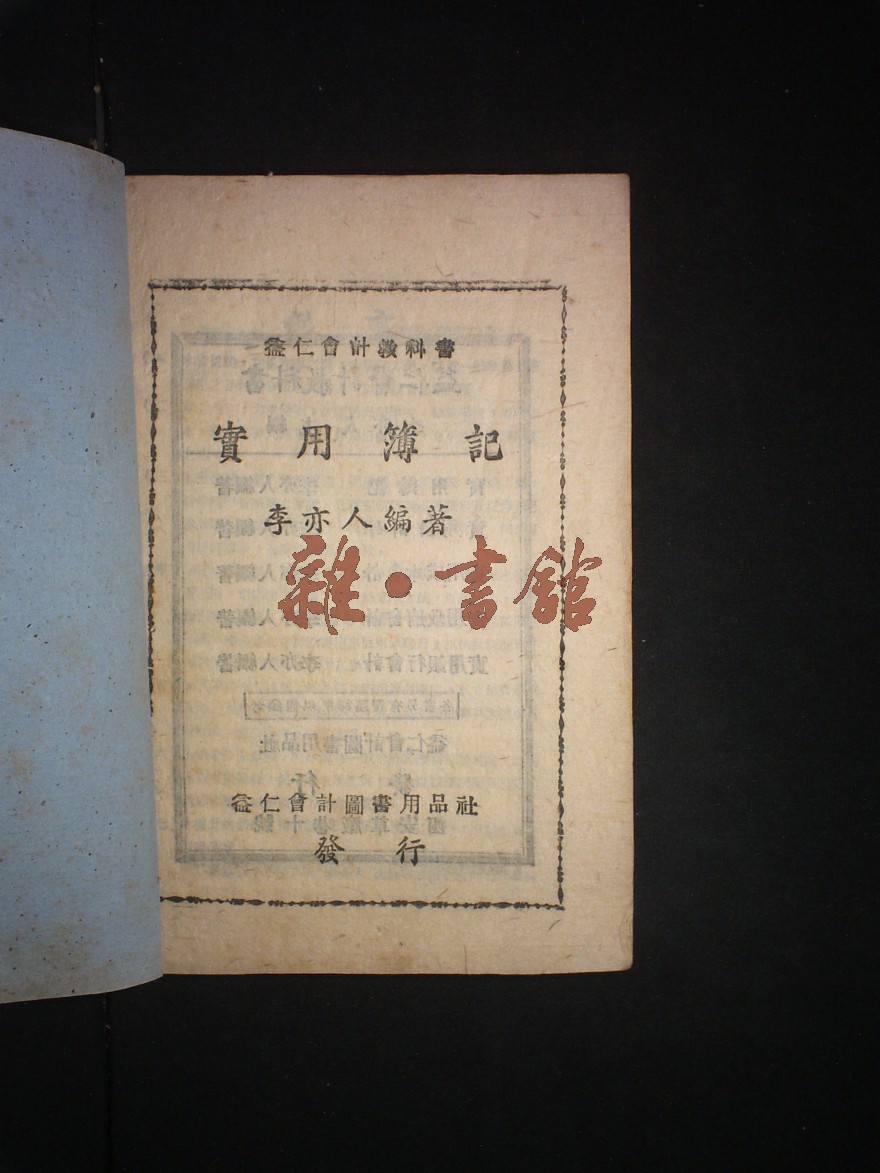 益仁會計教科書
實用簿記
李亦人編著
雜·書館
益仁會計圖書用品社
發行